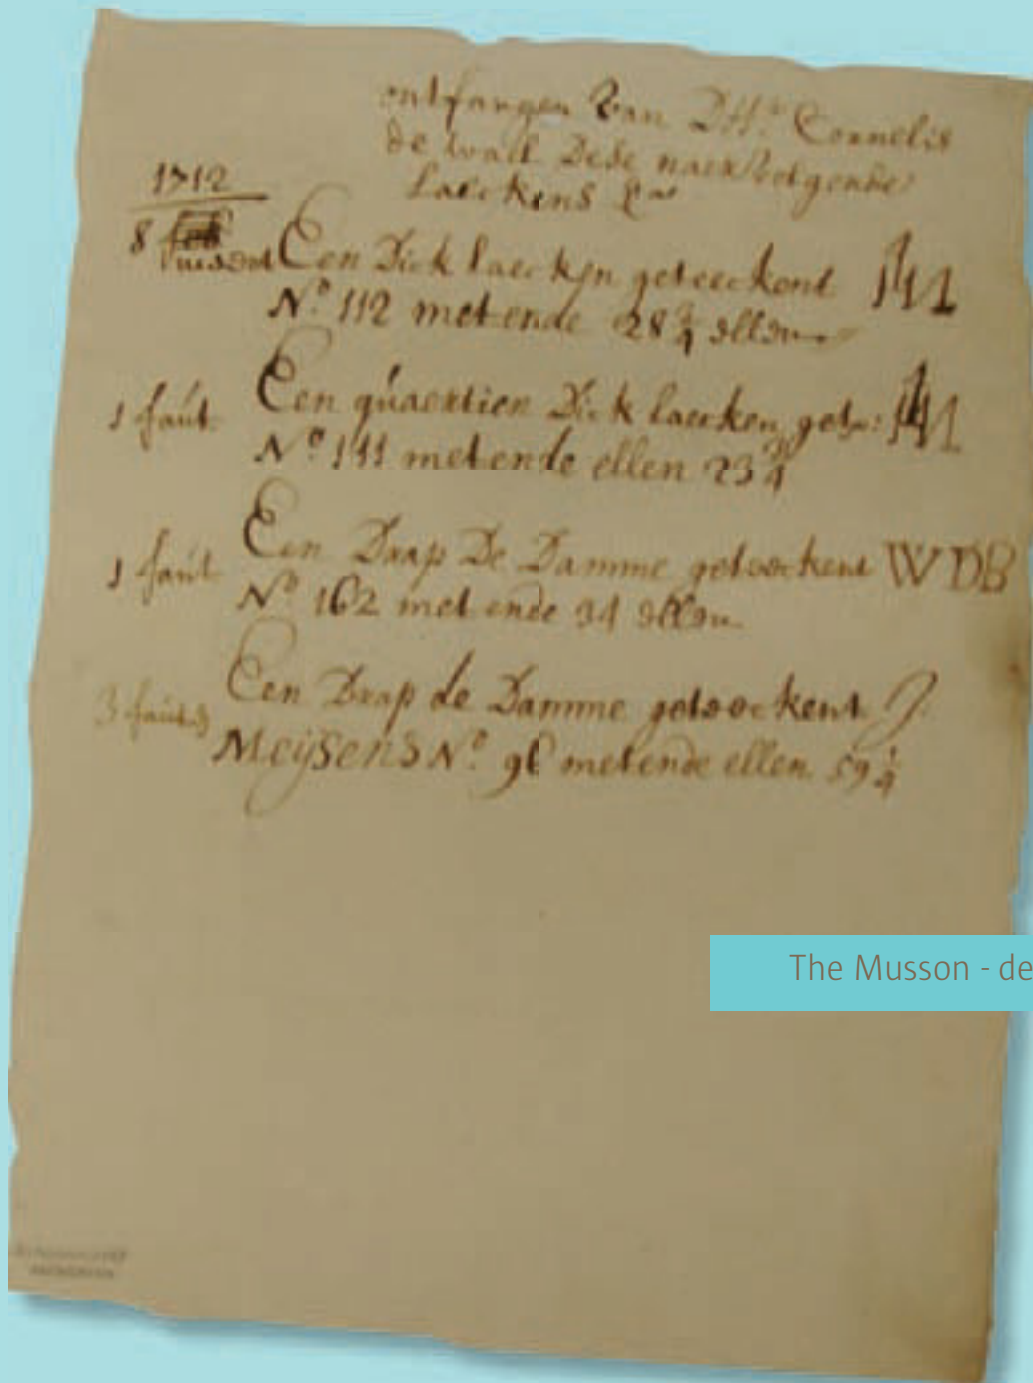 ontfangen van DHr. Cornelis
de wael dese naervolgende
Laeckens
1712
8
Een Dick laecken geteeckent
No. 112 metende 28 3/4 ellen
1 faut
Een quaertien Dick laecken get:
No 111 metende ellen 23 3/4
1 faut
Een Drap De Damme geteeckent WDB
No 162 metende 34 ellen
3 fauts
Een Drap de Damme geteeckent J.
Meijsens No. 96 metende ellen 59 1/4
The Musson - de